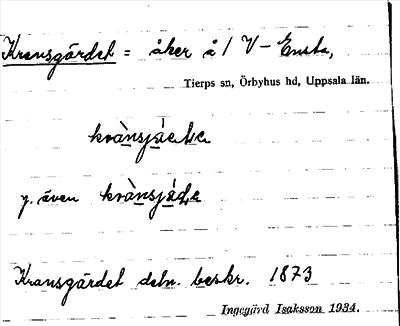 Kransgärdet = åker å 1 V-Ensta,
Tierps sn, Örbyhus hd, Uppsala län.
y. även
Kransgärdet detn. beskr. 1873
Ingegärd Isaksson 1934.